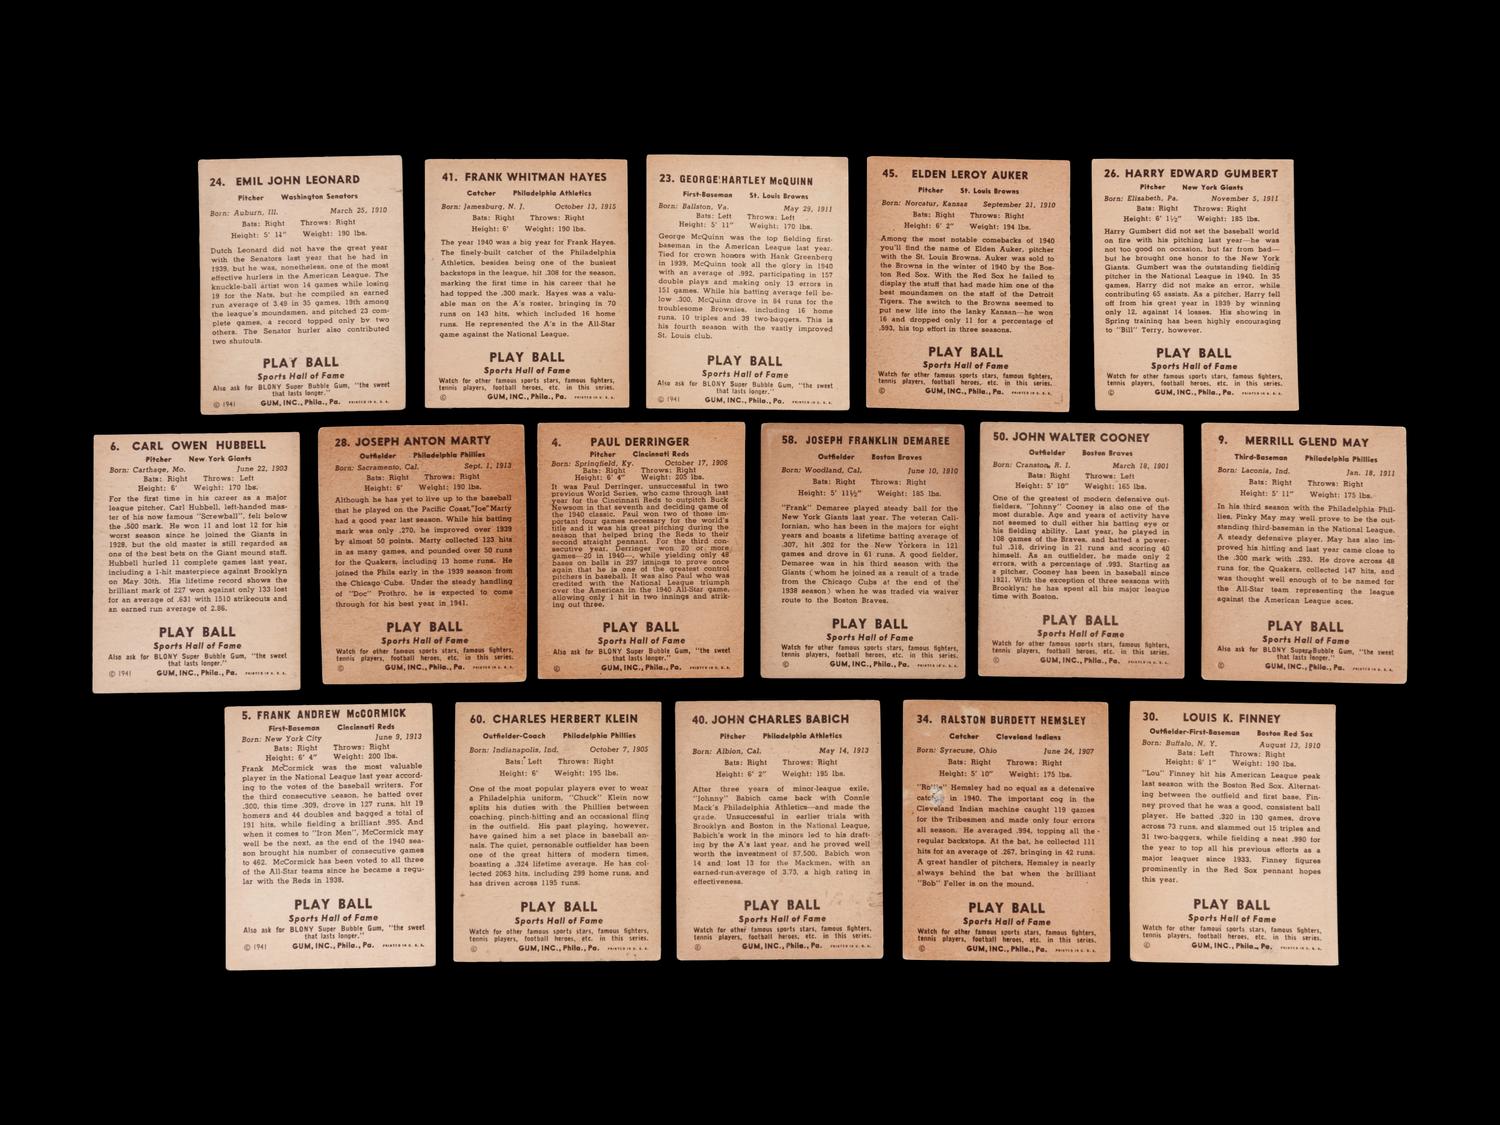 24. EMIL JOHN LEONARD
Pitcher Washington Senators
Born: Auburn, Ill. March 25, 1910
Bats: Right Throws: Right
Height: 5' 11" Weight: 190 lbs.
Dutch Leonard did not have the great year
with the Senators last year that he had in
1939, but he was, nonetheless, one of the most
effective hurlers in the American League. The
knuckle-ball artist won 14 games while losing
19 for the Nats, but he compiled an earned
run average of 3.49 in 35 games, 19th among
the league's moundsmen, and pitched 23 com-
plete games, a record topped only by two
others. The Senator hurler also contributed
two shutouts.
PLAY BALL
Sports Hall of Fame
Also ask for BLONY Super Bubble Gum, "the sweet
that lasts longer."
© 1941 GUM, INC., Phila., Pa. PRINTED IN U. S. A.
41. FRANK WHITMAN HAYES
Catcher Philadelphia Athletics
Born: Jamesburg, N. J. October 13, 1915
Bats: Right Throws: Right
Height: 6' Weight: 190 lbs.
The year 1940 was a big year for Frank Hayes.
The finely-built catcher of the Philadelphia
Athletics, besides being one of the busiest
backstops in the league, hit .308 for the season,
marking the first time in his career that he
had topped the .300 mark. Hayes was a valu-
able man on the A's roster, bringing in 70
runs on 143 hits, which included 16 home
runs. He represented the A's in the All-Star
game against the National League.
PLAY BALL
Sports Hall of Fame
Watch for other famous sports stars, famous fighters,
tennis players, football heroes, etc. in this series.
© GUM, INC., Phila., Pa. PRINTED IN U. S. A.
23. GEORGE HARTLEY McQUINN
First-Baseman St. Louis Browns
Born: Ballston, Va. May 29, 1911
Bats: Left Throws: Left
Height: 5' 11" Weight: 170 lbs.
George McQuinn was the top fielding first-
baseman in the American League last year.
Tied for crown honors with Hank Greenberg
in 1939, McQuinn took all the glory in 1940
with an average of .992, participating in 157
double plays and making only 13 errors in
151 games. While his batting average fell be-
low .300, McQuinn drove in 84 runs for the
troublesome Brownies, including 16 home
runs, 10 triples and 39 two-baggers. This is
his fourth season with the vastly improved
St. Louis club.
PLAY BALL
Sports Hall of Fame
Also ask for BLONY Super Bubble Gum, "the sweet
that lasts longer."
© 1941 GUM, INC., Phila., Pa. PRINTED IN U. S. A.
45. ELDEN LEROY AUKER
Pitcher St. Louis Browns
Born: Norcatur, Kansas September 21, 1910
Bats: Right Throws: Right
Height: 6' 2" Weight: 194 lbs.
Among the most notable comebacks of 1940
you'll find the name of Elden Auker, pitcher
with the St. Louis Browns. Auker was sold to
the Browns in the winter of 1940 by the Bos-
ton Red Sox. With the Red Sox he failed to
display the stuff that had made him one of the
best moundsmen on the staff of the Detroit
Tigers. The switch to the Browns seemed to
put new life into the lanky Kansan—he won
16 and dropped only 11 for a percentage of
.593, his top effort in three seasons.
PLAY BALL
Sports Hall of Fame
Watch for other famous sports stars, famous fighters,
tennis players, football heroes, etc. in this series.
© GUM, INC., Phila., Pa. PRINTED IN U. S. A.
26. HARRY EDWARD GUMBERT
Pitcher New York Giants
Born: Elizabeth, Pa. November 5, 1911
Bats: Right Throws: Right
Height: 6' 1½" Weight: 185 lbs.
Harry Gumbert did not set the baseball world
on fire with his pitching last year—he was
not too good on occasion, but far from bad—
but he brought one honor to the New York
Giants. Gumbert was the outstanding fielding
pitcher in the National League in 1940. In 35
games, Harry did not make an error, while
contributing 65 assists. As a pitcher, Harry fell
off from his great year in 1939 by winning
only 12, against 14 losses. His showing in
Spring training has been highly encouraging
to "Bill" Terry, however.
PLAY BALL
Sports Hall of Fame
Watch for other famous sports stars, famous fighters,
tennis players, football heroes, etc. in this series.
© GUM, INC., Phila., Pa. PRINTED IN U. S. A.
6. CARL OWEN HUBBELL
Pitcher New York Giants
Born: Carthage, Mo. June 22, 1903
Bats: Right Throws: Left
Height: 6' Weight: 170 lbs.
For the first time in his career as a major
league pitcher, Carl Hubbell, left-handed mas-
ter of his now famous "Screwball", fell below
the .500 mark. He won 11 and lost 12 for his
worst season since he joined the Giants in
1928, but the old master is still regarded as
one of the best bets on the Giant mound staff.
Hubbell hurled 11 complete games last year,
including a 1-hit masterpiece against Brooklyn
on May 30th. His lifetime record shows the
brilliant mark of 227 won against only 133 lost
for an average of .631 with 1510 strikeouts and
an earned run average of 2.86.
PLAY BALL
Sports Hall of Fame
Also ask for BLONY Super Bubble Gum, "the sweet
that lasts longer."
© 1941 GUM, INC., Phila., Pa. PRINTED IN U. S. A.
28. JOSEPH ANTON MARTY
Outfielder Philadelphia Phillies
Born: Sacramento, Cal. Sept. 1, 1913
Bats: Right Throws: Right
Height: 6' Weight: 190 lbs.
Although he has yet to live up to the baseball
that he played on the Pacific Coast, "Joe" Marty
had a good year last season. While his batting
mark was only .270, he improved over 1939
by almost 50 points. Marty collected 123 hits
in as many games, and pounded over 50 runs
for the Quakers, including 13 home runs. He
joined the Phils early in the 1939 season from
the Chicago Cubs. Under the steady handling
of "Doc" Prothro, he is expected to come
through for his best year in 1941.
PLAY BALL
Sports Hall of Fame
Watch for other famous sports stars, famous fighters,
tennis players, football heroes, etc. in this series.
© GUM, INC., Phila., Pa. PRINTED IN U. S. A.
4. PAUL DERRINGER
Pitcher Cincinnati Reds
Born: Springfield, Ky. October 17, 1906
Bats: Right Throws: Right
Height: 6' 4" Weight: 205 lbs.
It was Paul Derringer, unsuccessful in two
previous World Series, who came through last
year for the Cincinnati Reds to outpitch Buck
Newsom in that seventh and deciding game of
the 1940 classic. Paul won two of those im-
portant four games necessary for the world's
title and it was his great pitching during the
season that helped bring the Reds to their
second straight pennant. For the third con-
secutive year, Derringer won 20 or more
games—20 in 1940—, while yielding only 48
bases on balls in 297 innings to prove once
again that he is one of the greatest control
pitchers in baseball. It was also Paul who was
credited with the National League triumph
over the American in the 1940 All-Star game,
allowing only 1 hit in two innings and strik-
ing out three.
PLAY BALL
Sports Hall of Fame
Also ask for BLONY Super Bubble Gum, "the sweet
that lasts longer."
© GUM, INC., Phila., Pa. PRINTED IN U. S. A.
58. JOSEPH FRANKLIN DEMAREE
Outfielder Boston Braves
Born: Woodland, Cal. June 10, 1910
Bats: Right Throws: Right
Height: 5' 11½" Weight: 185 lbs.
"Frank" Demaree played steady ball for the
New York Giants last year. The veteran Cali-
fornian, who has been in the majors for eight
years and boasts a lifetime batting average of
.307, hit .302 for the New Yorkers in 121
games and drove in 61 runs. A good fielder,
Demaree was in his third season with the
Giants (whom he joined as a result of a trade
from the Chicago Cubs at the end of the
1938 season) when he was traded via waiver
route to the Boston Braves.
PLAY BALL
Sports Hall of Fame
Watch for other famous sports stars, famous fighters,
tennis players, football heroes, etc. in this series.
© GUM, INC., Phila., Pa. PRINTED IN U. S. A.
50. JOHN WALTER COONEY
Outfielder Boston Braves
Born: Cranston, R. I. March 18, 1901
Bats: Right Throws: Left
Height: 5' 10" Weight: 165 lbs.
One of the greatest of modern defensive out-
fielders, "Johnny" Cooney is also one of the
most durable. Age and years of activity have
not seemed to dull either his batting eye or
his fielding ability. Last year, he played in
108 games of the Braves, and batted a power-
ful .318, driving in 21 runs and scoring 40
himself. As an outfielder, he made only 2
errors, with a percentage of .993. Starting as
a pitcher, Cooney has been in baseball since
1921. With the exception of three seasons with
Brooklyn, he has spent all his major league
time with Boston.
PLAY BALL
Sports Hall of Fame
Watch for other famous sports stars, famous fighters,
tennis players, football heroes, etc. in this series.
© GUM, INC., Phila., Pa. PRINTED IN U. S. A.
9. MERRILL GLEND MAY
Third-Baseman Philadelphia Phillies
Born: Laconia, Ind. Jan. 18, 1911
Bats: Right Throws: Right
Height: 5' 11" Weight: 175 lbs.
In his third season with the Philadelphia Phil-
lies, Pinky May may well prove to be the out-
standing third-baseman in the National League.
A steady defensive player, May has also im-
proved his hitting and last year came close to
the .300 mark with .293. He drove across 48
runs for the Quakers, collected 147 hits, and
was thought well enough of to be named for
the All-Star team representing the league
against the American League aces.
PLAY BALL
Sports Hall of Fame
Also ask for BLONY Super Bubble Gum, "the sweet
that lasts longer."
© GUM, INC., Phila., Pa. PRINTED IN U. S. A.
5. FRANK ANDREW McCORMICK
First-Baseman Cincinnati Reds
Born: New York City June 9, 1913
Bats: Right Throws: Right
Height: 6' 4" Weight: 200 lbs.
Frank McCormick was the most valuable
player in the National League last year accord-
ing to the votes of the baseball writers. For
the third consecutive season, he batted over
.300, this time .309, drove in 127 runs, hit 19
homers and 44 doubles and bagged a total of
191 hits, while fielding a brilliant .995. And
when it comes to "Iron Men", McCormick may
well be the next, as the end of the 1940 sea-
son brought his number of consecutive games
to 462. McCormick has been voted to all three
of the All-Star teams since he became a regu-
lar with the Reds in 1938.
PLAY BALL
Sports Hall of Fame
Also ask for BLONY Super Bubble Gum, "the sweet
that lasts longer."
© 1941 GUM, INC., Phila., Pa. PRINTED IN U. S. A.
60. CHARLES HERBERT KLEIN
Outfielder-Coach Philadelphia Phillies
Born: Indianapolis, Ind. October 7, 1905
Bats: Left Throws: Right
Height: 6' Weight: 195 lbs.
One of the most popular players ever to wear
a Philadelphia uniform, "Chuck" Klein now
splits his duties with the Phillies between
coaching, pinch-hitting and an occasional fling
in the outfield. His past playing, however,
have gained him a set place in baseball an-
nals. The quiet, personable outfielder has been
one of the great hitters of modern times,
boasting a .324 lifetime average. He has col-
lected 2063 hits, including 299 home runs, and
has driven across 1195 runs.
PLAY BALL
Sports Hall of Fame
Watch for other famous sports stars, famous fighters,
tennis players, football heroes, etc. in this series.
© GUM, INC., Phila., Pa. PRINTED IN U. S. A.
40. JOHN CHARLES BABICH
Pitcher Philadelphia Athletics
Born: Albion, Cal. May 14, 1913
Bats: Right Throws: Right
Height: 6' 2" Weight: 195 lbs.
After three years of minor-league exile,
"Johnny" Babich came back with Connie
Mack's Philadelphia Athletics—and made the
grade. Unsuccessful in earlier trials with
Brooklyn and Boston in the National League,
Babich's work in the minors led to his draft-
ing by the A's last year, and he proved well
worth the investment of $7,500. Babich won
14 and lost 13 for the Mackmen, with an
earned-run-average of 3.73, a high rating in
effectiveness.
PLAY BALL
Sports Hall of Fame
Watch for other famous sports stars, famous fighters,
tennis players, football heroes, etc. in this series.
© GUM, INC., Phila., Pa. PRINTED IN U. S. A.
34. RALSTON BURDETT HEMSLEY
Catcher Cleveland Indians
Born: Syracuse, Ohio June 24, 1907
Bats: Right Throws: Right
Height: 5' 10" Weight: 175 lbs.
Hemsley had no equal as a defensive
in 1940. The important cog in the
Cleveland Indian machine caught 119 games
for the Tribesmen and made only four errors
all season. He averaged .994, topping all the
regular backstops. At the bat, he collected 111
hits for an average of .267, bringing in 42 runs.
A great handler of pitchers, Hemsley is nearly
always behind the bat when the brilliant
"Bob" Feller is on the mound.
PLAY BALL
Sports Hall of Fame
Watch for other famous sports stars, famous fighters,
tennis players, football heroes, etc. in this series.
© GUM, INC., Phila., Pa. PRINTED IN U. S. A.
30. LOUIS K. FINNEY
Outfielder-First-Baseman Boston Red Sox
Born: Buffalo, N. Y. August 13, 1910
Bats: Left Throws: Right
Height: 6' 1" Weight: 190 lbs.
"Lou" Finney hit his American League peak
last season with the Boston Red Sox. Alternat-
ing between the outfield and first base, Fin-
ney proved that he was a good, consistent ball
player. He batted .320 in 130 games, drove
across 73 runs, and slammed out 15 triples and
31 two-baggers, while fielding a neat .990 for
the year to top all his previous efforts as a
major leaguer since 1933. Finney figures
prominently in the Red Sox pennant hopes
this year.
PLAY BALL
Sports Hall of Fame
Watch for other famous sports stars, famous fighters,
tennis players, football heroes, etc. in this series.
© GUM, INC., Phila., Pa. PRINTED IN U. S. A.